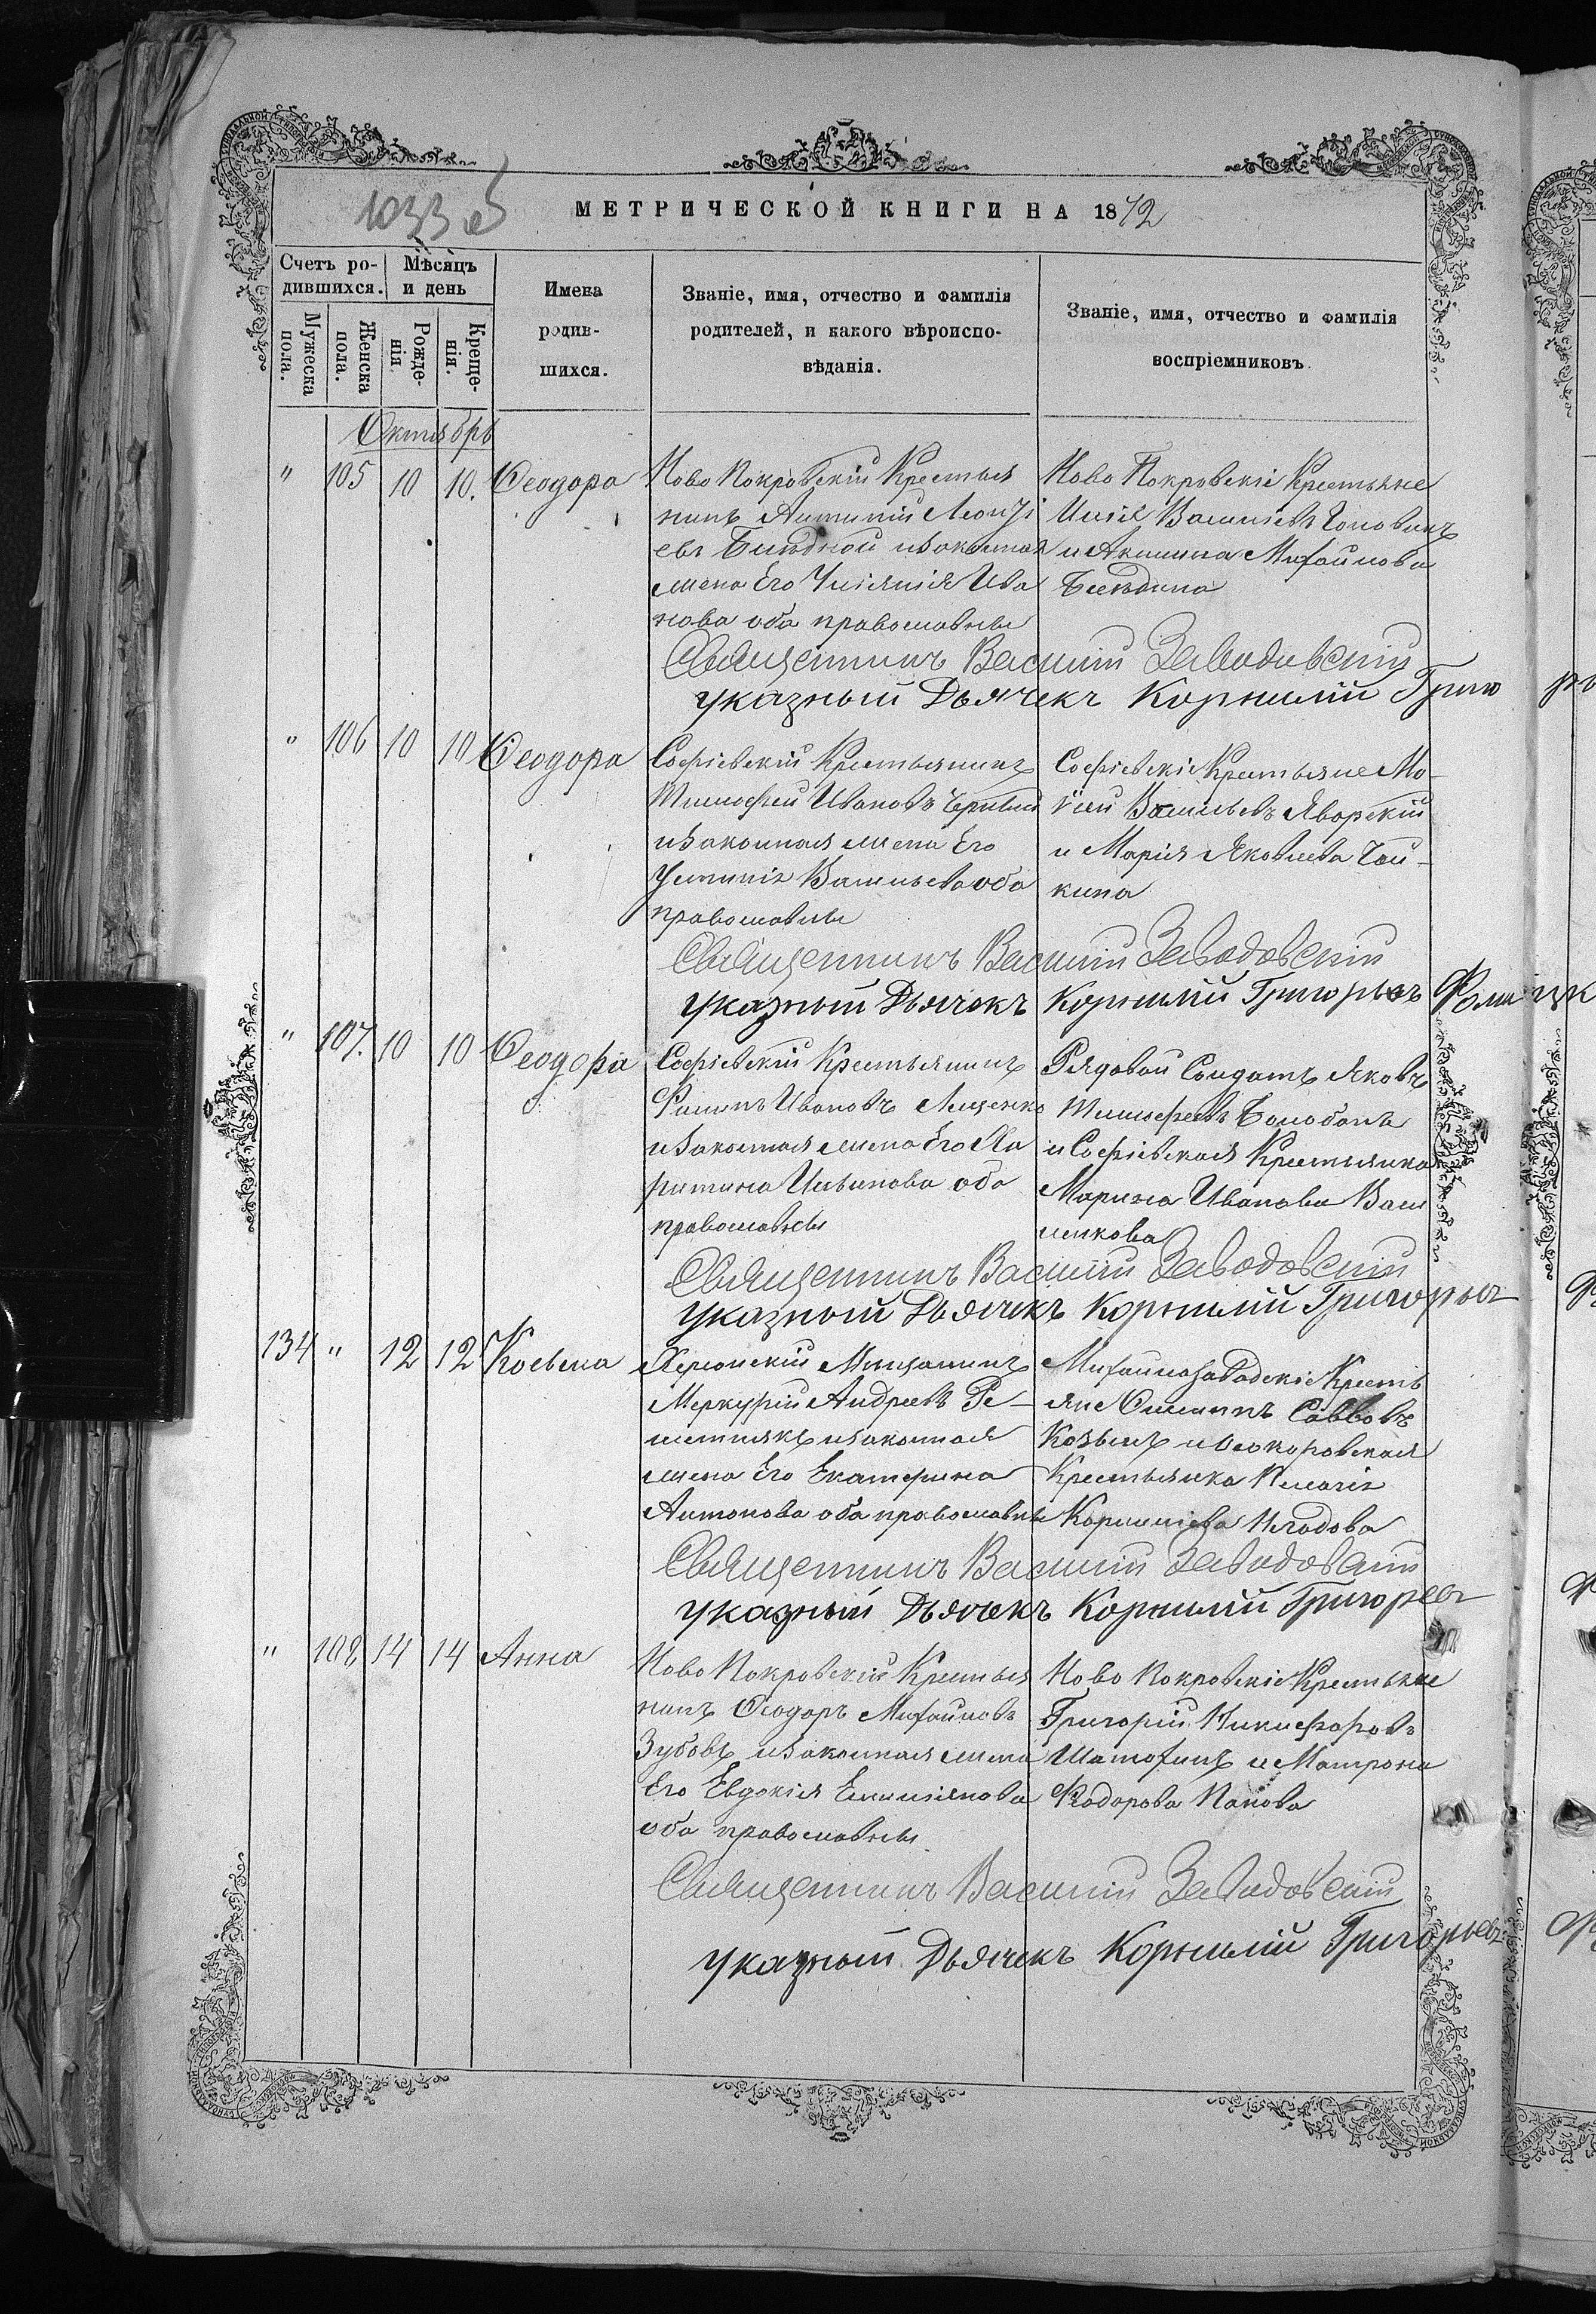 1033 об
МЕТРИЧЕСКОЙ КНИГИ НА 1872
Счетъ ро-
дившихся.
Мѣсяцъ
и день
Мужеска
пола.
Женска
пола.
Рожде-
нія.
Креще-
нія.
Имена
родив-
шихся.
Званіе, имя, отчество и фамилія
родителей, и какого вѣроиспо-
вѣданія.
Званіе, имя, отчество и фамилія
воспріемниковъ.
Октябрь
" 105 10 10. Ѳеодора
Ново Покровскій Крестья
нинъ Антипій Леонті
евъ и законная
жена Его Іуліанія Ива
нова оба православны
Ново Покровскіе Крестьяне
Васильевъ
и Акилина Михайлова
Священникъ Василій Заводовскій
указный Дьячекъ Корнилій Григо
" 106 10 10 Ѳеодора
Софіевскій Крестьянинъ
Тимофей Ивановъ
и законная жена Его
Устинія Васильева оба
православны
Софіевскіе Крестьяне Мо-
Васильевъ Яворскій
и Марія Яковлева Чай-
кина
Священникъ Василій Заводовскій
указный Дьячекъ Корнилій Григорьевъ
" 107. 10 10 Ѳеодора
Софіевскій Крестьянинъ
Филипъ Ивановъ Лященко
и законная жена Его Ха
ритина Ульянова оба
православны
Рядовой Солдатъ Яковъ
Тимофеевъ Болобанъ
и Софіевская Крестьянка
Марина Иванова Васи
Священникъ Василій Заводовскій
указный Дьячекъ Корнилій Григорьевъ
134 " 12 12 Косьма
Херсонскій Мещанинъ
Меркурій Андреевъ Ре-
шетнякъ и законная
жена Его Екатерина
Антонова оба православны
Михайлозаводскіе Кресть
яне Савовъ
Козынъ и
Крестьянка Пелагія
Корнилієва
Священникъ Василій Заводовскій
указный Дьячекъ Корнилій Григорьевъ
" 108 14 14 Анна
Ново Покровскій Крестья
нинъ Ѳеодоръ Михайловъ
Зубовъ и законная жена
Его Евдокія Емиліянова
оба православны
Ново Покровскіе Крестьяне
Григорій Никифоровъ
Шатохинъ и Матрона
Ѳеодорова Попова
Священникъ Василій Заводовскій
указный Дьячекъ Корнилій Григорьевъ